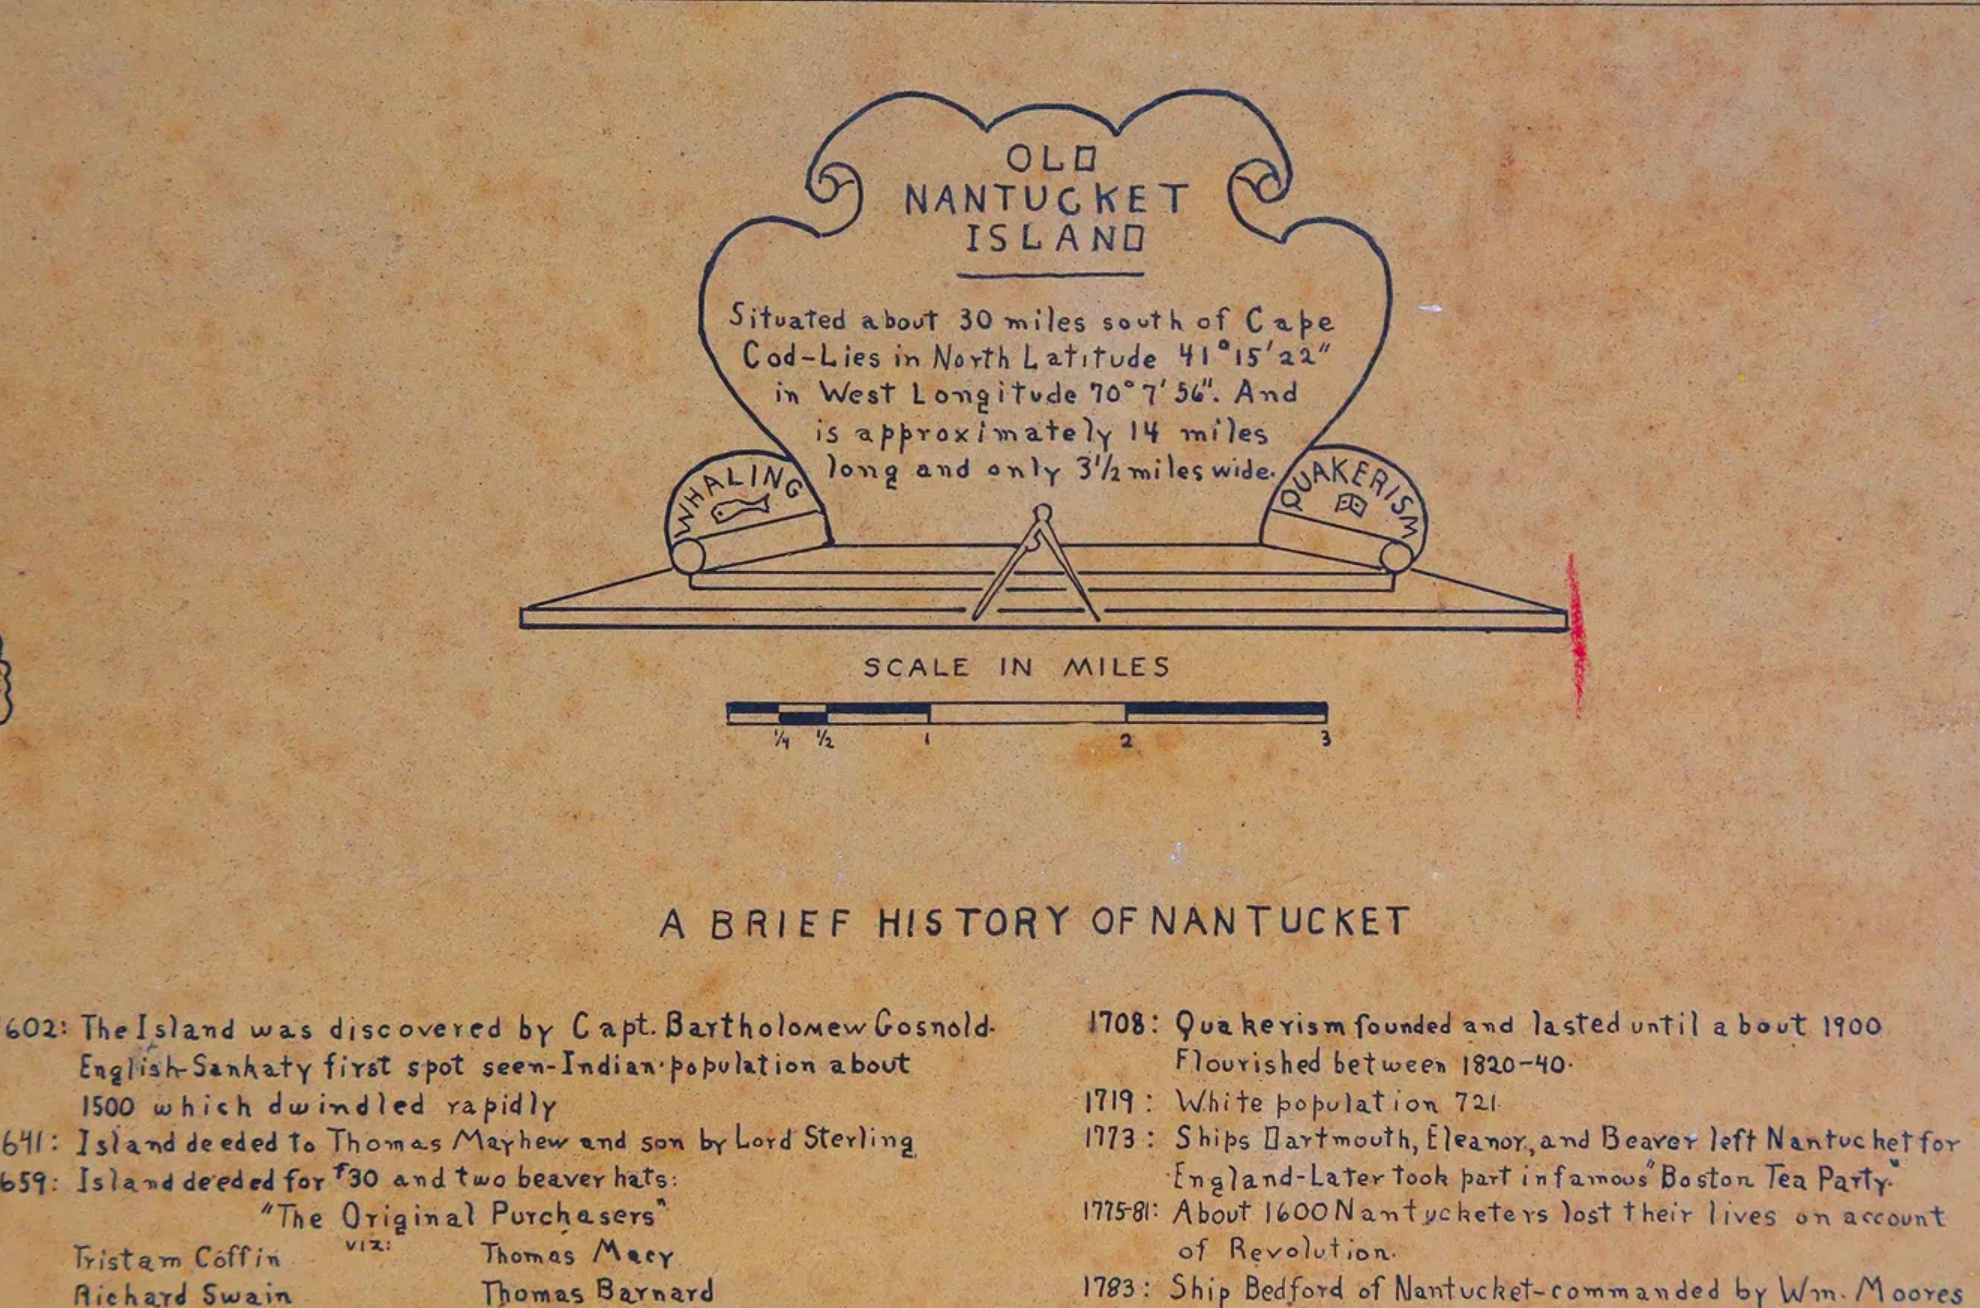 OLD
NANTUCKET
ISLAND
Situated about 30 miles south of Cape
Cod-Lies in North Latitude 41°15'22"
in West Longitude 70°7'56". And
is approximately 14 miles
long and only 3½ miles wide.
WHALING
QUAKERISM
SCALE IN MILES
¼ ½ 1 2 3
A BRIEF HISTORY OF NANTUCKET
602: The Island was discovered by Capt. Bartholomew Gosnold-
English-Sankaty first spot seen-Indian population about
1500 which dwindled rapidly
641: Island deeded to Thomas Mayhew and son by Lord Sterling
659: Island deeded for £30 and two beaver hats:
"The Original Purchasers"
viz:
Tristam Coffin
Thomas Macy
Richard Swain
Thomas Barnard
1708: Quakerism founded and lasted until about 1900
Flourished between 1820-40.
1719: White population 721
1773: Ships Dartmouth, Eleanor, and Beaver left Nantucket for
England-Later took part in famous "Boston Tea Party."
1775-81: About 1600 Nantucketers lost their lives on account
of Revolution.
1783: Ship Bedford of Nantucket-commanded by Wm. Moores